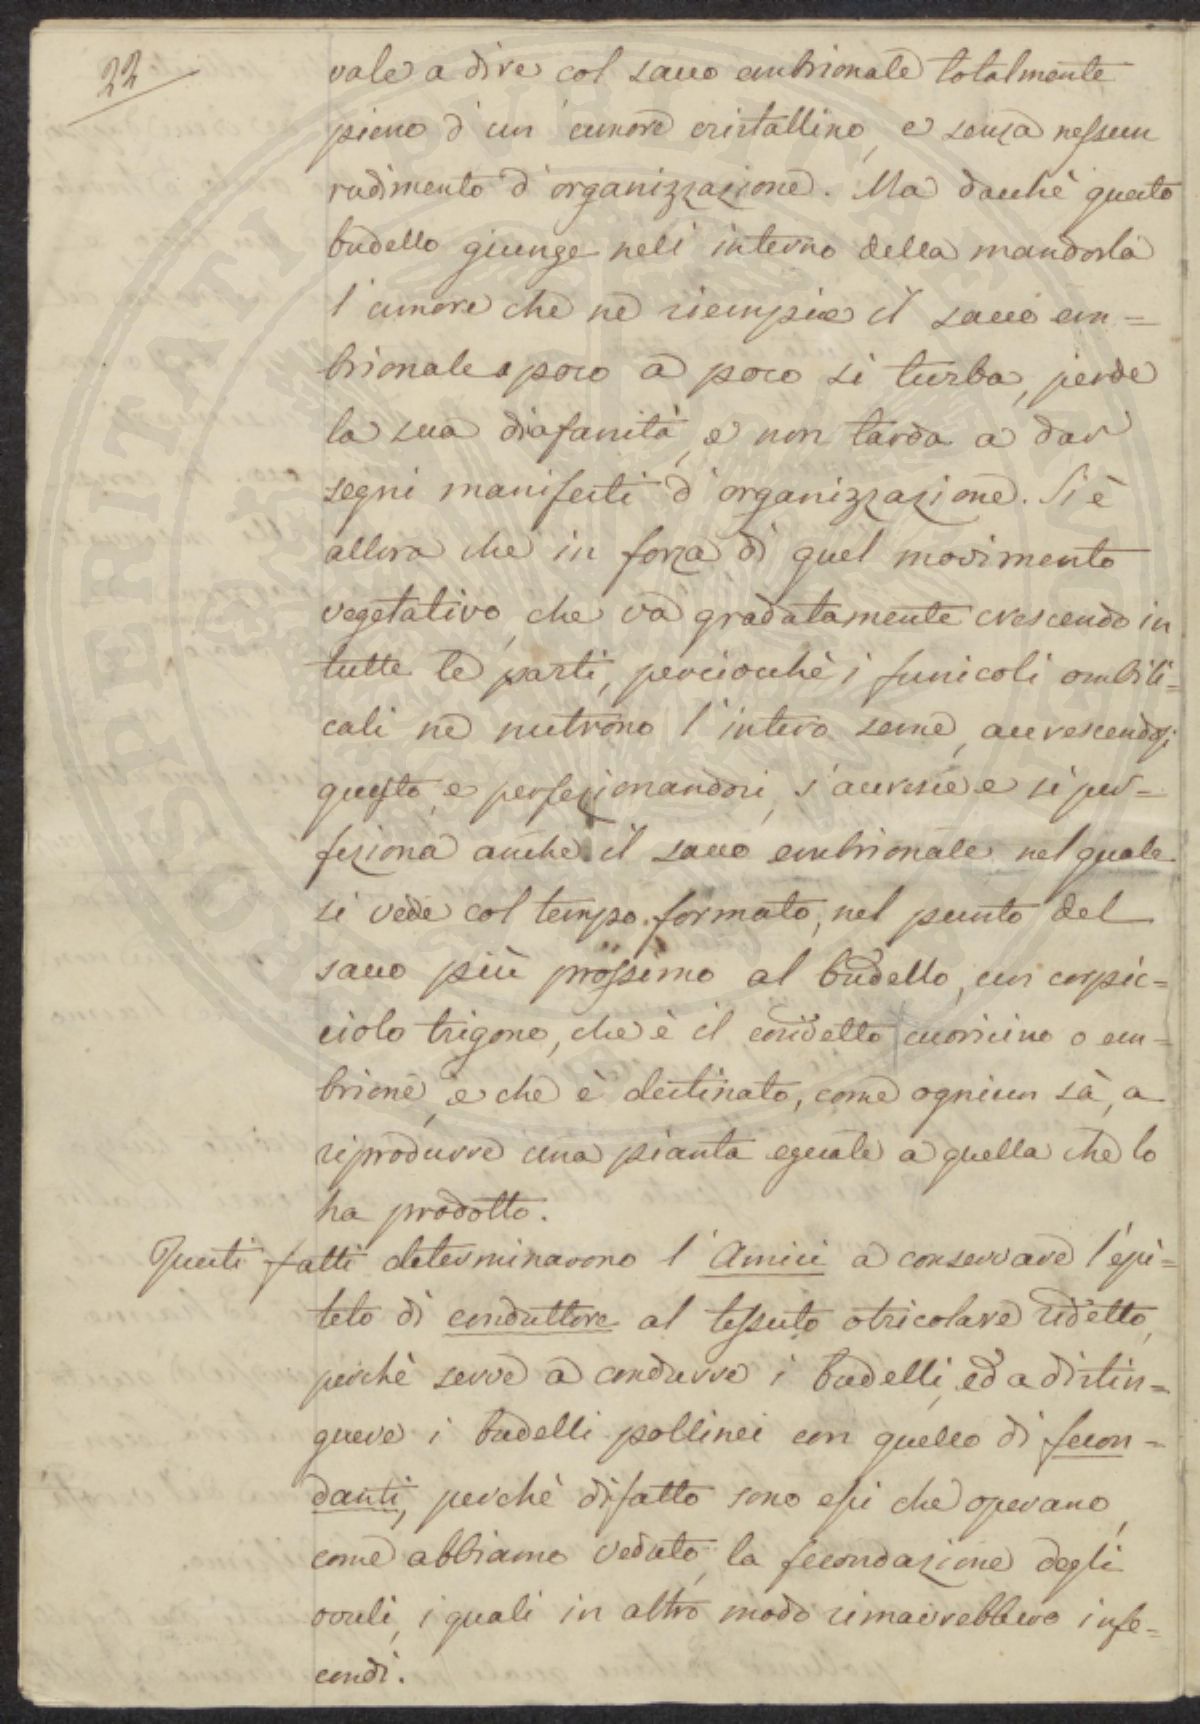 22
vale a dire col sacco embrionale totalmente
pieno d'un umore cristallino, e senza nessun
rudimento d'organizzazione. Ma dacchè questo
budello giunge nell'interno della mandorla
l'umore che ne riempie il sacco em=
brionale poco a poco si turba, perde
la sua diafanità, e non tarda a dar
segni manifesti d'organizzazione. Si è
allora che in forza di quel movimento
vegetativo, che va gradatamente crescendo in
tutte le parti, perciocchè i funicoli ombili=
cali ne nutrono l'intero seme, accrescendosi
questo, e perfezionandosi, s'accresce e si per=
feziona anche il sacco embrionale nel quale
si vede col tempo formato, nel punto del
sacco più prossimo al budello, un corpic=
ciolo trigono, che è il cosidetto cuoricino o em=
brione, e che è destinato, come ognun sà, a
riprodurre una pianta eguale a quella che lo
ha prodotto.
Questi fatti determinarono l'Amici a conservare l'epi=
teto di conduttore al tessuto otricolare ridetto,
perchè serve a condurre i budelli, ed a distin=
guere i budelli pollinei con quello di fecon=
danti, perchè difatto sono essi che operano,
come abbiamo veduto, la fecondazione degli
ovuli, i quali in altro modo rimarrebbero infe=
condi.
SPERITATI